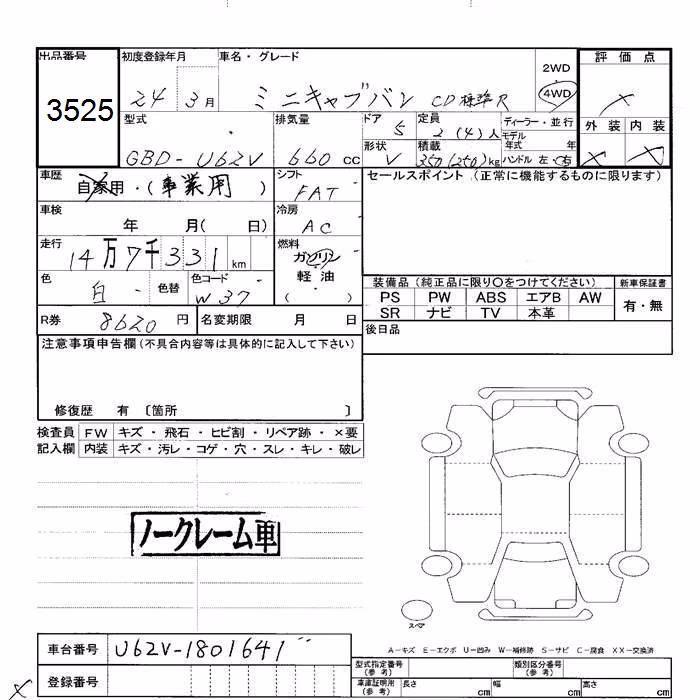 出品番号 初度登録年月 車名・グレード 評価点
3525 24 3月 ミニキャブバン CD 標準R 2WD 4WD
型式 排気量 ドア 5 定員 2(4)人 ディーラー・並行 外装 内装
GBD-U62V 660cc 形状 V 積載 350(250)kg モデル年式 年 ハンドル 左・右
車歴 自家用・(事業用) シフト FAT セールスポイント(正常に機能するものに限ります)
車検 年 月(日) 冷房 AC
走行 14万7千331km 燃料 ガソリン 軽油 ( )
色 白 色替 色コード W37 装備品(純正品に限り〇をつけてください) 新車保証書
PS PW ABS エアB AW 有・無
R券 8620円 名変期限 月 日 SR ナビ TV 本革
注意事項申告欄(不具合内容等は具体的に記入して下さい) 後日品
修復歴 有 〔箇所 〕
検査員 FW キズ・飛石・ヒビ割・リペア跡・×要
記入欄 内装 キズ・汚レ・コゲ・穴・スレ・キレ・破レ
ノークレーム車
スペア
車台番号 U62V-1801641 A-キズ E-エクボ U-凹み W-補修跡 S-サビ C-腐食 XX-交換済
登録番号 型式指定番号(参考) 類別区分番号(参考)
車庫証明用(参考) 長さ cm 幅 cm 高さ cm